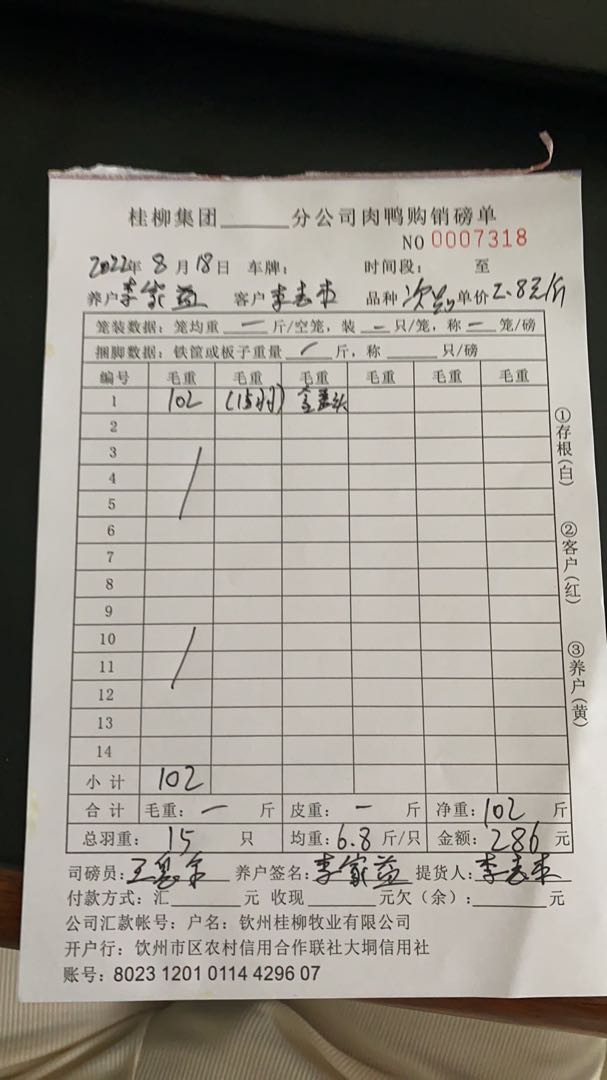 桂柳集团______分公司肉鸭购销磅单
NO 0007318
2022年 8 月 18日 车牌： 时间段： 至
养户李家益 客户李志 品种次品 单价2.8元/斤
笼装数据：笼均重 一 斤/空笼，装 一 只/笼，称 一 笼/磅
捆脚数据：铁筐或板子重量 / 斤，称______只/磅
编号 毛重 毛重 毛重 毛重 毛重 毛重
1 102 (15羽)
2
3
4
5
6
7
8
9
10
11
12
13
14
小计 102
合计 毛重：一 斤 皮重：一 斤 净重：102 斤
总羽重：15 只 均重：6.8斤/只 金额：286 元
司磅员：王 养户签名：李家益 提货人：李志
付款方式：汇______元 收现______元欠（余）：______元
公司汇款帐号：户名：钦州桂柳牧业有限公司
开户行：钦州市区农村信用合作联社大垌信用社
账号：8023 1201 0114 4296 07
①存根(白)
②客户(红)
③养户(黄)